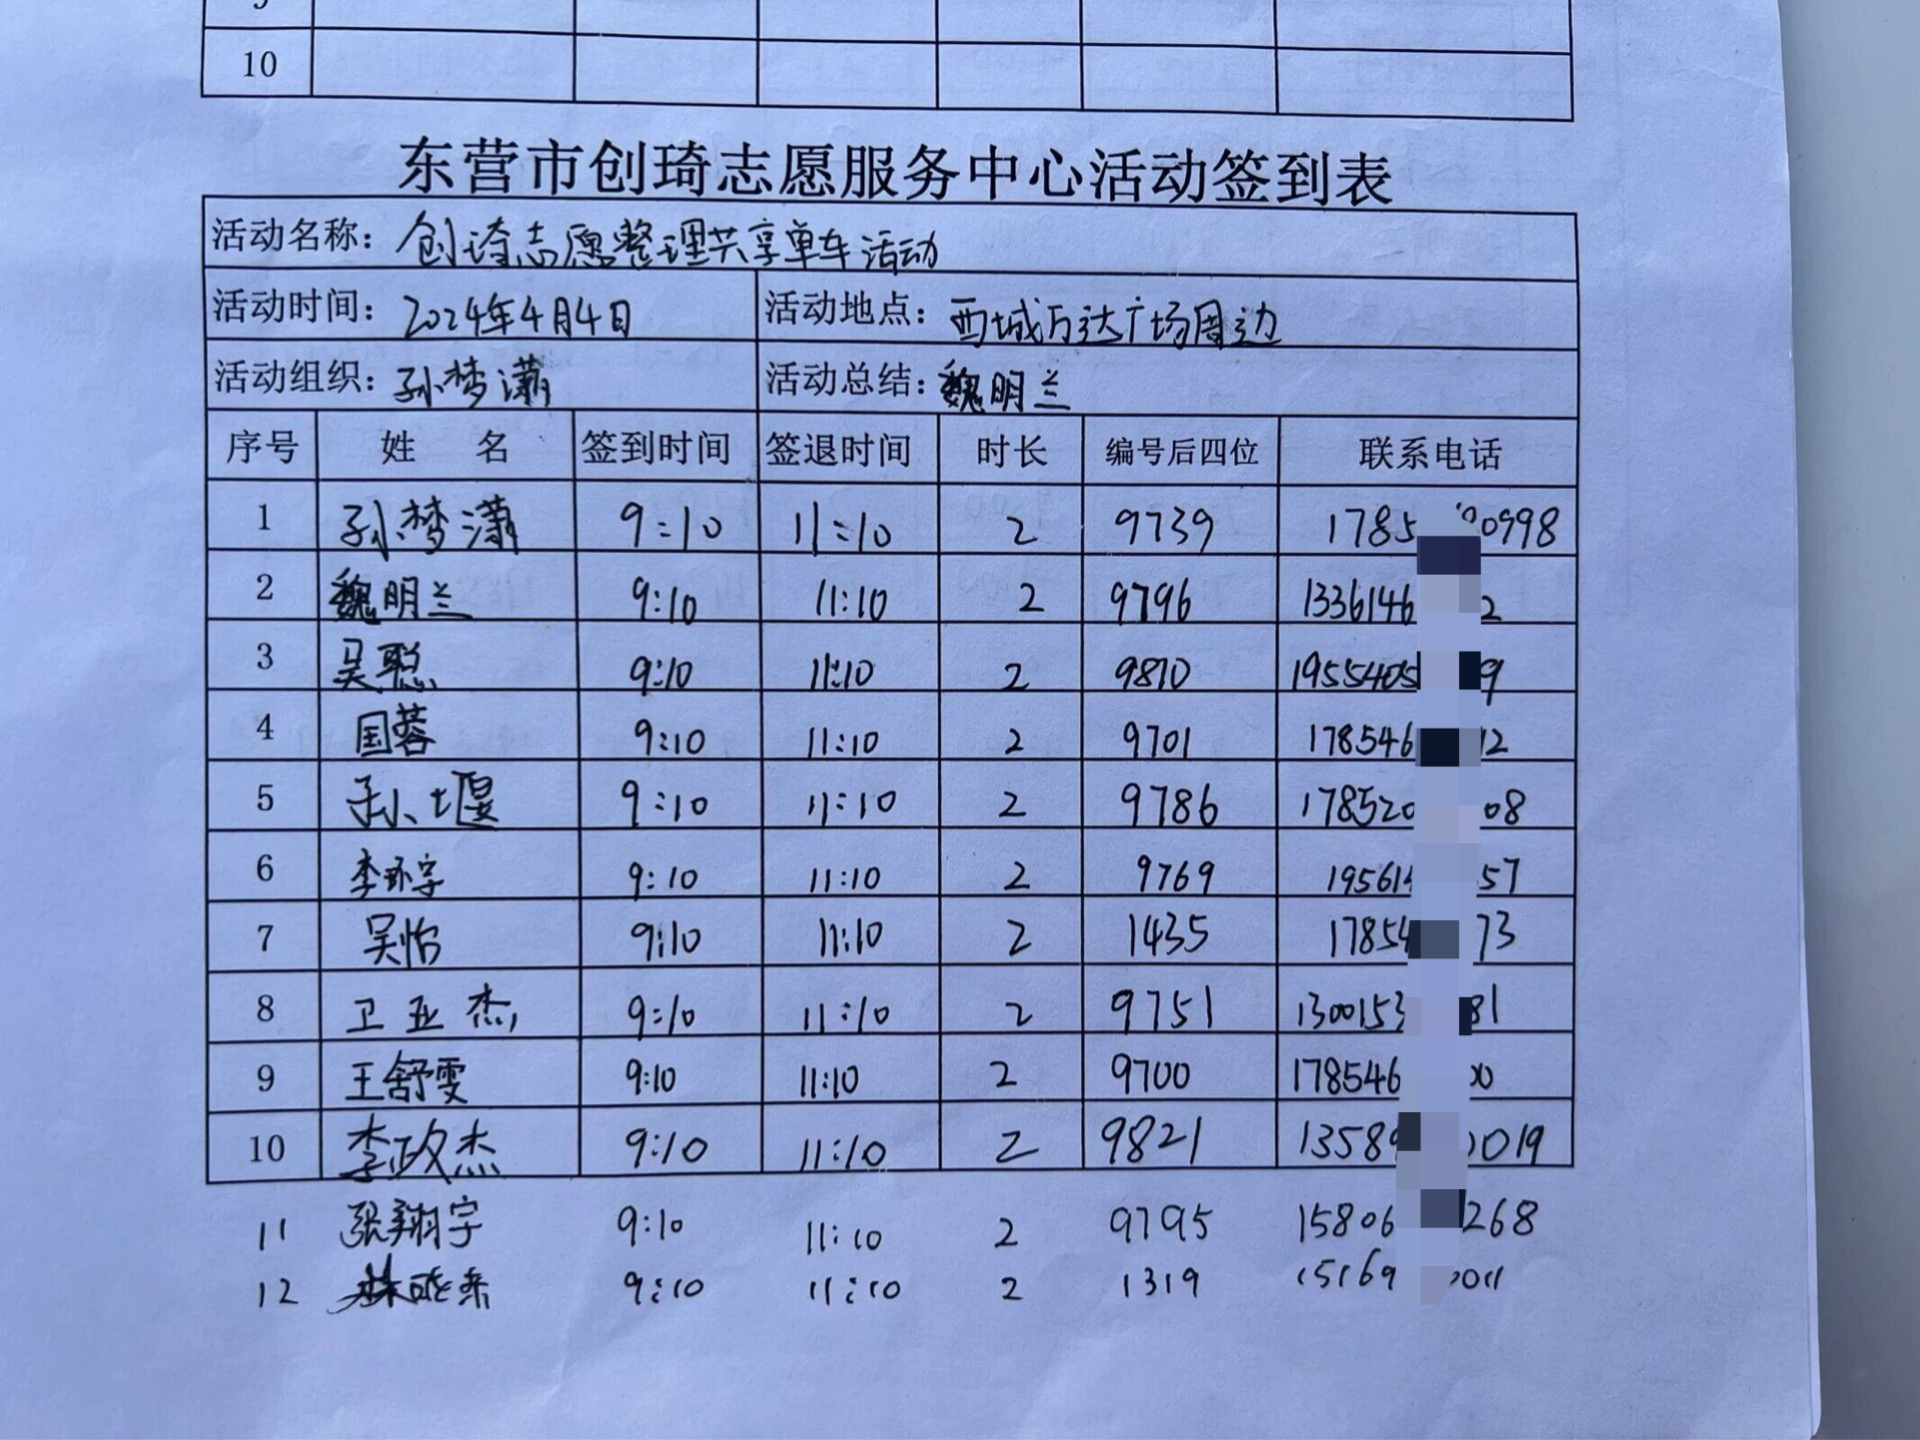 10
东营市创琦志愿服务中心活动签到表
活动名称：创琦志愿整理共享单车活动
活动时间：2024年4月4日 活动地点：西城万达广场周边
活动组织：孙梦潇 活动总结：魏明兰
序号 姓 名 签到时间 签退时间 时长 编号后四位 联系电话
1 孙梦潇 9:10 11:10 2 9739 1785 0998
2 魏明兰 9:10 11:10 2 9796 1336146 2
3 吴聪 9:10 11:10 2 9810 1955405 9
4 国蓉 9:10 11:10 2 9701 178546 12
5 孙堰 9:10 11:10 2 9786 178520 08
6 李环宇 9:10 11:10 2 9769 19561 57
7 吴怡 9:10 11:10 2 1435 1785 73
8 卫亚杰 9:10 11:10 2 9751 130015 81
9 王舒雯 9:10 11:10 2 9700 178546 00
10 李政杰 9:10 11:10 2 9821 1358 0019
11 张翔宇 9:10 11:10 2 9795 15806 268
12 9:10 11:10 2 1319 15169 0011